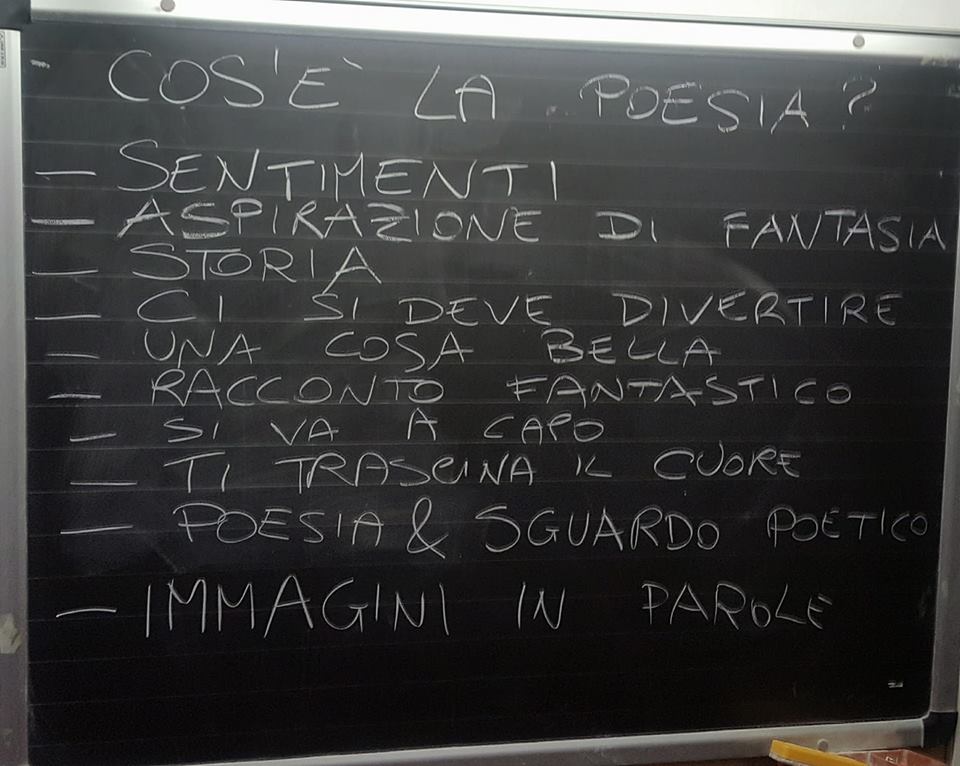 COS'E` LA POESIA?
— SENTIMENTI
— ASPIRAZIONE DI FANTASIA
— STORIA
— CI SI DEVE DIVERTIRE
— UNA COSA BELLA
— RACCONTO FANTASTICO
— SI VA A CAPO
— TI TRASCINA IL CUORE
— POESIA & SGUARDO POETICO
— IMMAGINI IN PAROLE